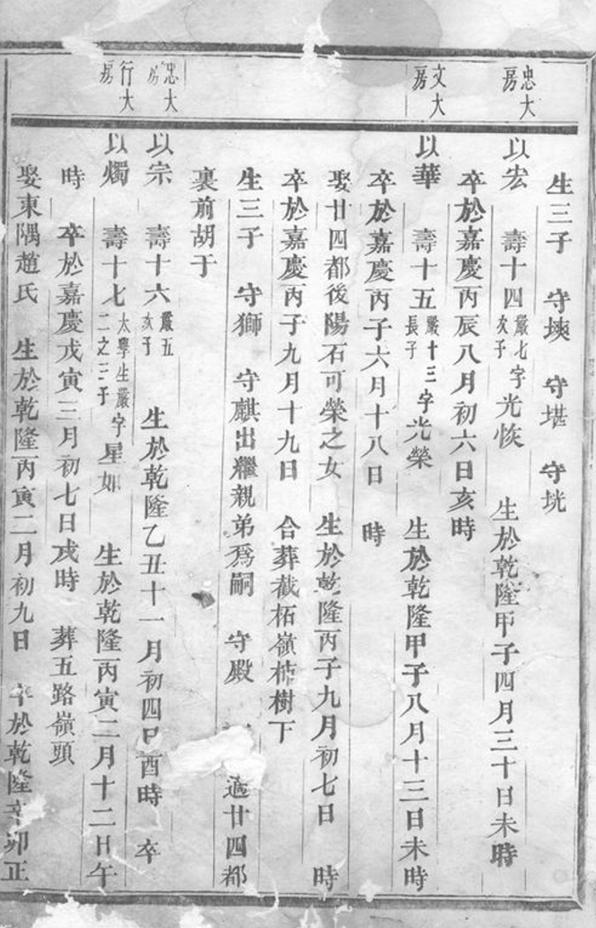 生三子 守堧 守堪 守垙
忠大房
以宏 壽十四嚴七次子字光恢 生於乾隆甲子四月三十日未時
卒於嘉慶丙辰八月初六日亥時
文大房
以華 壽十五嚴十三長子字光榮 生於乾隆甲子八月十三日未時
卒於嘉慶丙子六月十八日 時
娶廿四都後陽石可榮之女 生於乾隆丙子九月初七日 時
卒於嘉慶丙子九月十九日 合葬截柘嶺 樹下
生三子 守獅 守麒出繼親弟爲嗣 守殿 適廿四都
裏前胡于
忠大房
以宗 壽十六嚴五次子 生於乾隆乙丑十一月初四日酉時 卒
行大房
以燭 壽十七太學生嚴二之三子字星如 生於乾隆丙寅二月十二日午
時 卒於嘉慶戊寅三月初七日戌時 葬五路嶺頭
娶東隅趙氏 生於乾隆丙寅二月初九日 卒於乾隆辛卯正